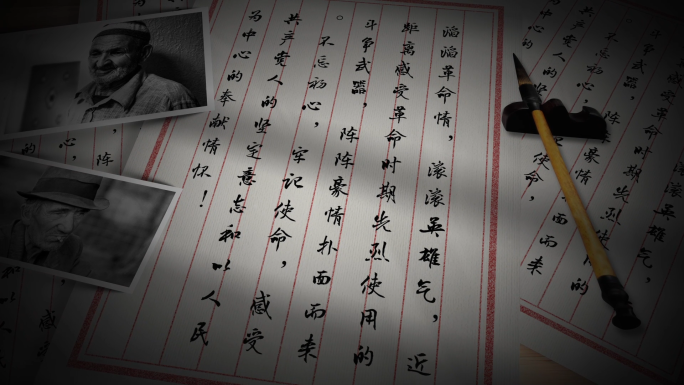 滔滔革命情，滚滚英雄气，近
距离感受革命时期先烈使用的
斗争武器，阵阵豪情扑面而来
不忘初心，牢记使命，感受
共产党人的坚定意志和以人民
为中心的奉献情怀！